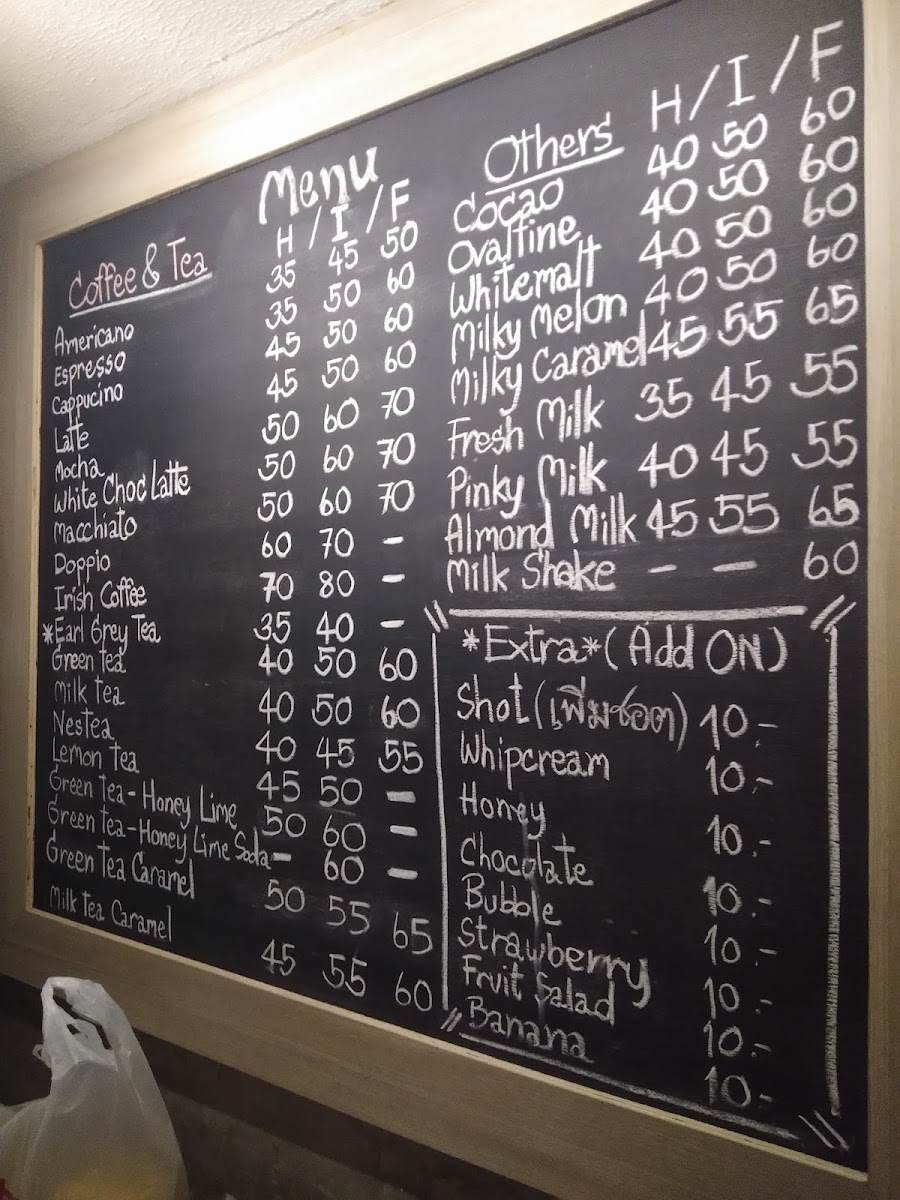 Menu
Coffee & Tea H / I / F
Americano 35 45 50
Espresso 35 50 60
Cappucino 45 50 60
Latte 45 50 60
Mocha 50 60 70
White Choc Latte 50 60 70
Macchiato 50 60 70
Doppio 60 70 -
Irish Coffee 70 80 -
*Earl Grey Tea 35 40 -
Green tea 40 50 60
Milk tea 40 50 60
Nestea 40 45 55
Lemon tea 45 50 -
Green Tea - Honey Lime 50 60 -
Green Tea - Honey Lime Soda - 60 -
Green Tea Caramel 50 55 65
Milk tea Caramel 45 55 60
Others H / I / F
Cocao 40 50 60
Ovaltine 40 50 60
Whitemalt 40 50 60
Milky Melon 40 50 60
Milky Caramel 45 55 65
Fresh Milk 35 45 55
Pinky Milk 40 45 55
Almond Milk 45 55 65
Milk Shake - - 60
*Extra* (Add ON)
Shot (เพิ่มชอต) 10.-
Whipcream 10.-
Honey 10.-
Chocolate 10.-
Bubble 10.-
Strawberry 10.-
Fruit Salad 10.-
Banana 10.-